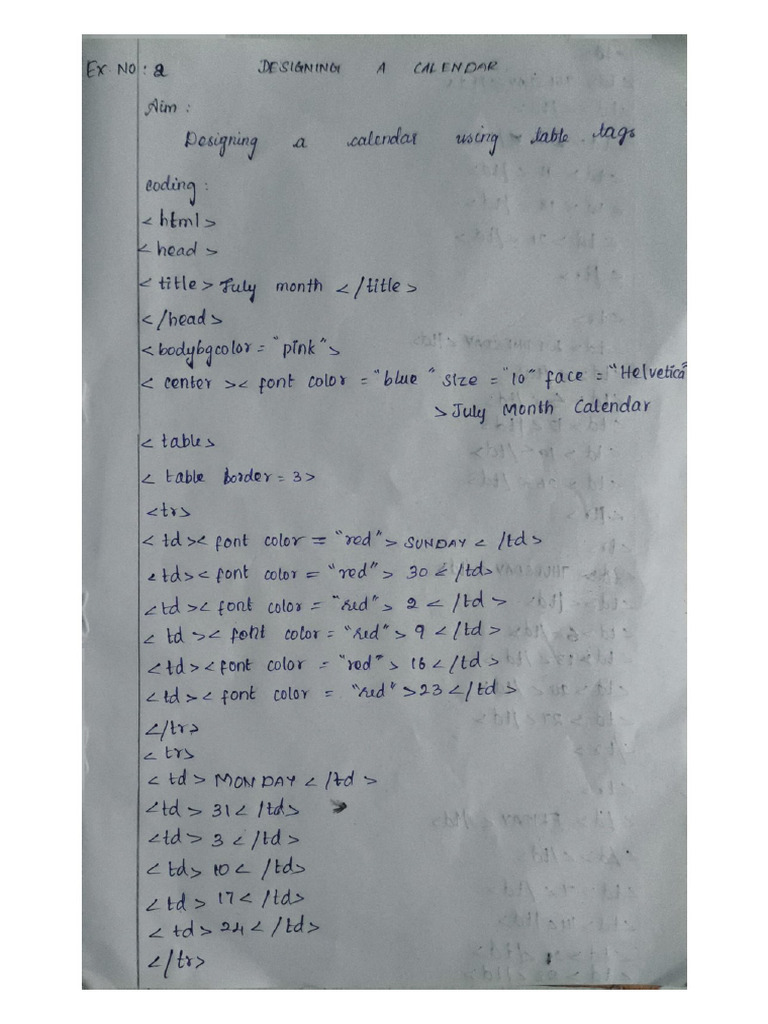 Ex NO : 2 DESIGNING A CALENDAR
Aim :
Designing a calendar using table tags
coding :
< html >
< head >
< title > July month </title>
</head>
<bodybgcolor = "pink">
< center >< font color = "blue" size = "10" face = "Helvetica"
> July Month Calendar
< table>
< table border = 3>
<tr>
< td>< font color = "red"> SUNDAY < /td>
<td>< font color = "red"> 30 </td>
<td>< font color = "red"> 2 < /td >
< td >< font color = "red"> 9 </td >
<td>< font color = "red"> 16 </td>
<td>< font color = "red">23 </td >
</tr>
< tr>
< td > MONDAY < /td >
<td > 31< /td>
<td > 3 < /td >
< td> 10 < /td>
< td > 17 < /td>
< td > 24 < /td>
</tr>